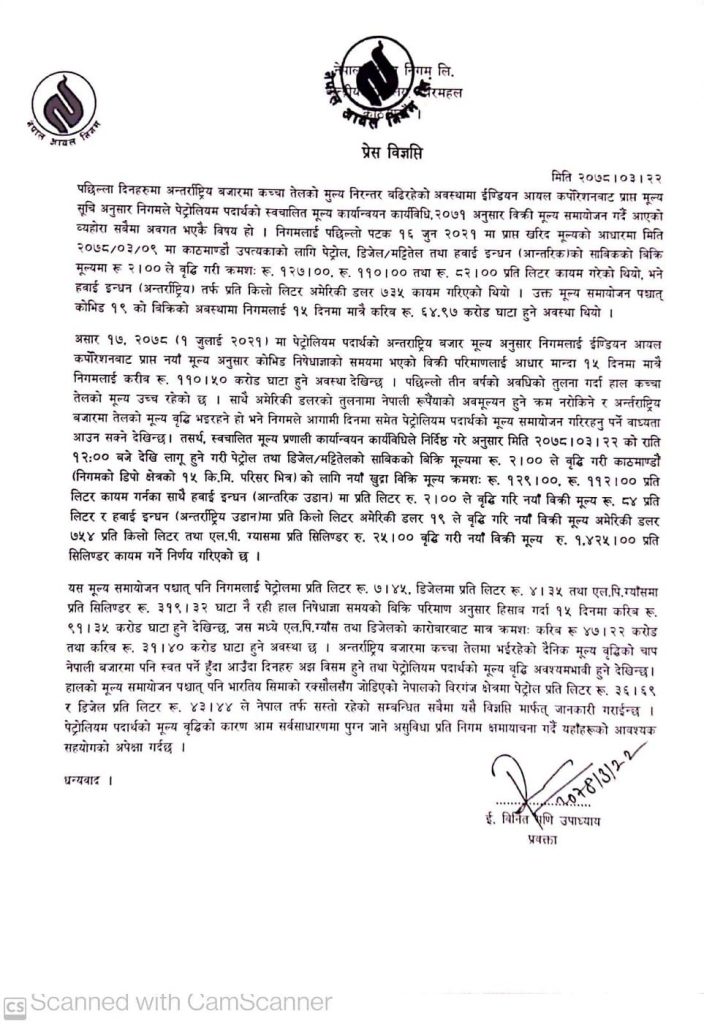 नेपाल आयल निगम
नेपाल आयल निगम लि.
नेपाल निगम लि.
प्रेस विज्ञप्ति
मिति २०७८।०३।२२
पछिल्ला दिनहरुमा अन्तर्राष्ट्रिय बजारमा कच्चा तेलको मुल्य निरन्तर बढिरहेको अवस्थामा ईण्डियन आयल कर्पोरेशनबाट प्राप्त मूल्य
सूचि अनुसार निगमले पेट्रोलियम पदार्थको स्वचालित मूल्य कार्यान्वयन कार्यविधि,२०७१ अनुसार विक्री मूल्य समायोजन गर्दै आएको
व्यहोरा सबैमा अवगत भएकै विषय हो । निगमलाई पछिल्लो पटक १६ जुन २०२१ मा प्राप्त खरिद मूल्यको आधारमा मिति
२०७८/०३/०९ मा काठमाण्डौ उपत्यकाको लागि पेट्रोल, डिजेल/मट्टितेल तथा हवाई इन्धन (आन्तरिक)को साबिकको बिक्रि
मूल्यमा रू २।०० ले वृद्धि गरी क्रमशः रू. १२७।००, रू. ११०।०० तथा रू. ८२।०० प्रति लिटर कायम गरेको थियो, भने
हवाई इन्धन (अन्तर्राष्ट्रिय) तर्फ प्रति किलो लिटर अमेरिकी डलर ७३५ कायम गरिएको थियो । उक्त मूल्य समायोजन पश्चात्
कोभिड १९ को बिक्रिको अवस्थामा निगमलाई १५ दिनमा मात्रै करिब रू. ६४.९७ करोड घाटा हुने अवस्था थियो ।
असार १७, २०७८ (१ जुलाई २०२१) मा पेट्रोलियम पदार्थको अन्तराष्ट्रिय बजार मूल्य अनुसार निगमलाई ईण्डियन आयल
कर्पोरेशनबाट प्राप्त नयाँ मूल्य अनुसार कोभिड निषेधाज्ञाको समयमा भएको विक्री परिमाणलाई आधार मान्दा १५ दिनमा मात्रै
निगमलाई करीब रू. ११०।५० करोड घाटा हुने अवस्था देखिन्छ । पछिल्लो तीन वर्षको अवधिको तुलना गर्दा हाल कच्चा
तेलको मूल्य उच्च रहेको छ । साथै अमेरिकी डलरको तुलनामा नेपाली रूपैयाको अवमूल्यन हुने क्रम नरोकिने र अर्न्तराष्ट्रिय
बजारमा तेलको मूल्य वृद्धि भइरहने हो भने निगमले आगामी दिनमा समेत पेट्रोलियम पदार्थको मूल्य समायोजन गरिरहनु पर्ने वाध्यता
आउन सक्ने देखिन्छ। तसर्थ, स्वचालित मूल्य प्रणाली कार्यान्वयन कार्यविधिले निर्दिष्ठ गरे अनुसार मिति २०७८।०३।२२ को राति
१२:०० बजे देखि लागू हुने गरी पेट्रोल तथा डिजेल/मट्टितेलको साबिकको बिक्रि मूल्यमा रू. २।०० ले वृद्धि गरी काठमाण्डौ
(निगमको डिपो क्षेत्रको १५ कि.मि. परिसर भित्र) को लागि नयाँ खुद्रा बिक्रि मूल्य क्रमशः रू. १२९।००, रू. ११२।०० प्रति
लिटर कायम गर्नका साथै हवाई इन्धन (आन्तरिक उडान) मा प्रति लिटर रु. २।०० वृद्धि गरि नयाँ विक्री मूल्य रू. ८४ प्रति
लिटर र हवाई इन्धन (अन्तर्राष्ट्रिय उडान)मा प्रति किलो लिटर अमेरिकी डलर १९ ले वृद्धि गरि नयाँ विक्री मूल्य अमेरिकी डलर
७५४ प्रति किलो लिटर तथा एल.पी. ग्यासमा प्रति सिलिण्डर रु. २५।०० वृद्धि गरी नयाँ विक्री मूल्य रु. १,४२५।०० प्रति
सिलिण्डर कायम गर्ने निर्णय गरिएको छ ।
यस मूल्य समायोजन पश्चात् पनि निगमलाई पेट्रोलमा प्रति लिटर रू. ७।४५, डिजेलमा प्रति लिटर रू. ४।३५ तथा एल.पि.ग्याँसमा
प्रति सिलिण्डर रू. ३१९।३२ घाटा नै रही हाल निषेधाज्ञा समयको बिक्रि परिमाण अनुसार हिसाब गर्दा १५ दिनमा करिब रू.
९१।३५ करोड घाटा हुने देखिन्छ, जस मध्ये एल.पि.ग्याँस तथा डिजेलको कारोबारबाट मात्र क्रमशः करिब रू ४७।२२ करोड
तथा करिब रू. ३१।४० करोड घाटा हुने अवस्था छ । अन्तर्राष्ट्रिय बजारमा कच्चा तेलमा भईरहेको दैनिक मूल्य वृद्धिको चाप
नेपाली बजारमा पनि स्वत पर्ने हुँदा आउँदा दिनहरु अझ विसम हुने तथा पेट्रोलियम पदार्थको मूल्य वृद्धि अवश्यमभावी हुने देखिन्छ।
हालको मूल्य समायोजन पश्चात् पनि भारतिय सिमाको रक्सौलसँग जोडिएको नेपालको विरगंज क्षेत्रमा पेट्रोल प्रति लिटर रू. ३६।६९
र डिजेल प्रति लिटर रू. ४३।४४ ले नेपाल तर्फ सस्तो रहेको सम्बन्धित सबैमा यसै विज्ञप्ति मार्फत् जानकारी गराईन्छ ।
पेट्रोलियम पदार्थको मूल्य वृद्धिको कारण आम सर्वसाधारणमा पुग्न जाने असुविधा प्रति निगम क्षमायाचना गर्दै यहाँहरूको आवश्यक
सहयोगको अपेक्षा गर्दछ ।
धन्यवाद ।
२०७८/३/२२
ई. विनित मणि उपाध्याय
प्रवक्ता
CS Scanned with CamScanner